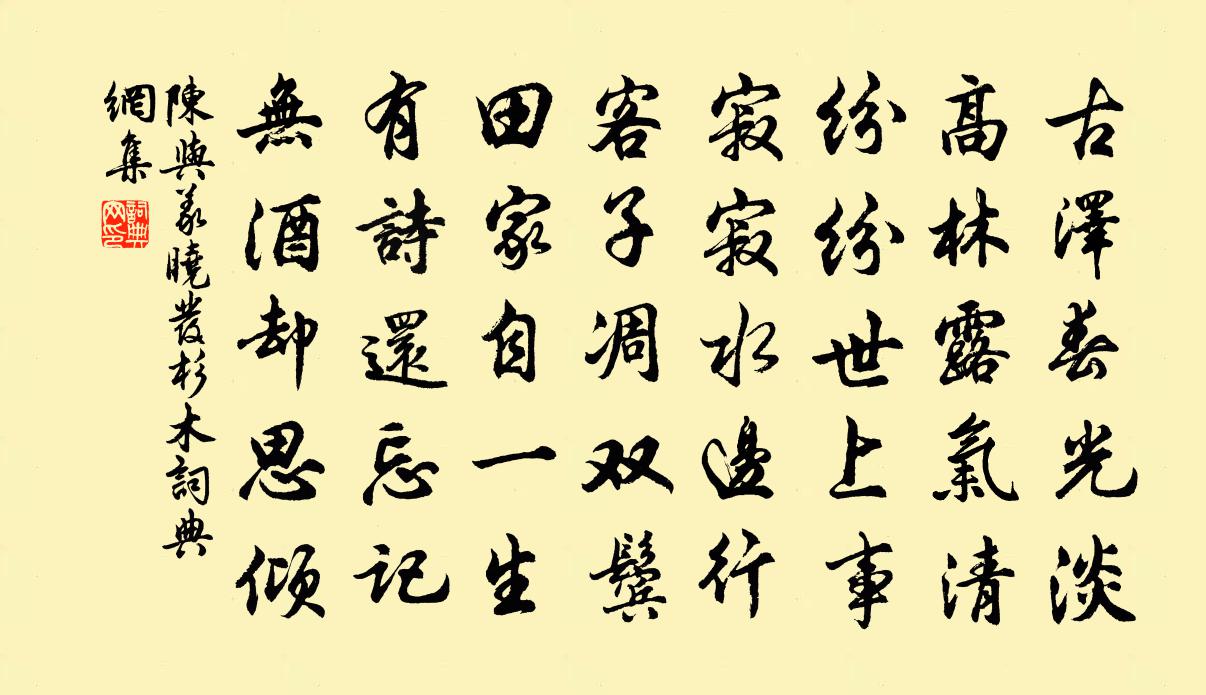 古澤春光淡
高林露氣清
紛紛世上事
寂寂水邊行
客子凋双鬓
田家自一生
有詩還忘記
無酒却思傾
陳與義曉發杉木詞典
網集
詞典
网印